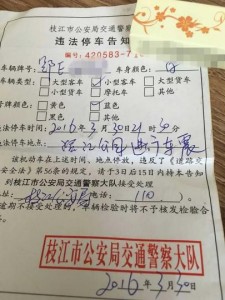 枝江市公安局交通警察
违法停车告知
编号:420583-7
车辆牌号: 鄂E 车身颜色: 白
车辆类型: 大型客车 小型客车 大型货车
小型货车 摩托车 其他
号牌颜色: 黄色 蓝色
黑色 白色
违法停车时间: 2016年3月30日21时50分
违法停车地点:
该机动车在上述时间、地点停放,违反了《道路交
安全法》第56条的规定,请于3日后15日内持本告知
到枝江市公安局交通警察大队接受处理
电话: (110)
逾期不接受处理的,车辆检验时将不予核发检验合
枝江市公安局交通警察大队
2016年3月30日